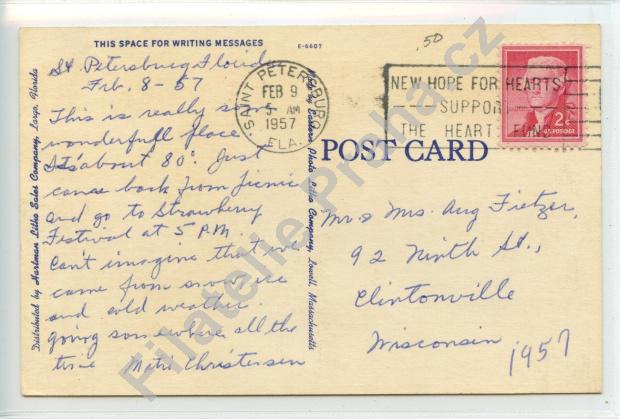 THIS SPACE FOR WRITING MESSAGES
E-6607
.50
St. Petersburg, Florida
Feb. 8-57
This is really some
wonderfull place
It's about 80°. Just
came back from picnic
and go to Strawberry
Festival at 5 P.M.
Can't imagine that we
came from snow, ice
and cold weather.
going somewhere all the
time Christensen
Distributed by Hartman Litho Sales Company, Largo, Florida
Made by Eastern Photo Litho Company, Lowell, Massachusetts
SAINT PETERSBURG
FEB 9
5- AM
1957
FLA.
NEW HOPE FOR HEARTS
SUPPORT
THE HEART FUND
2¢
U.S. POSTAGE
POST CARD
Mr & Mrs. Aug Fietzer,
92 Ninth St.,
Clintonville
Wisconsin
1957
Filatelie Praha.cz